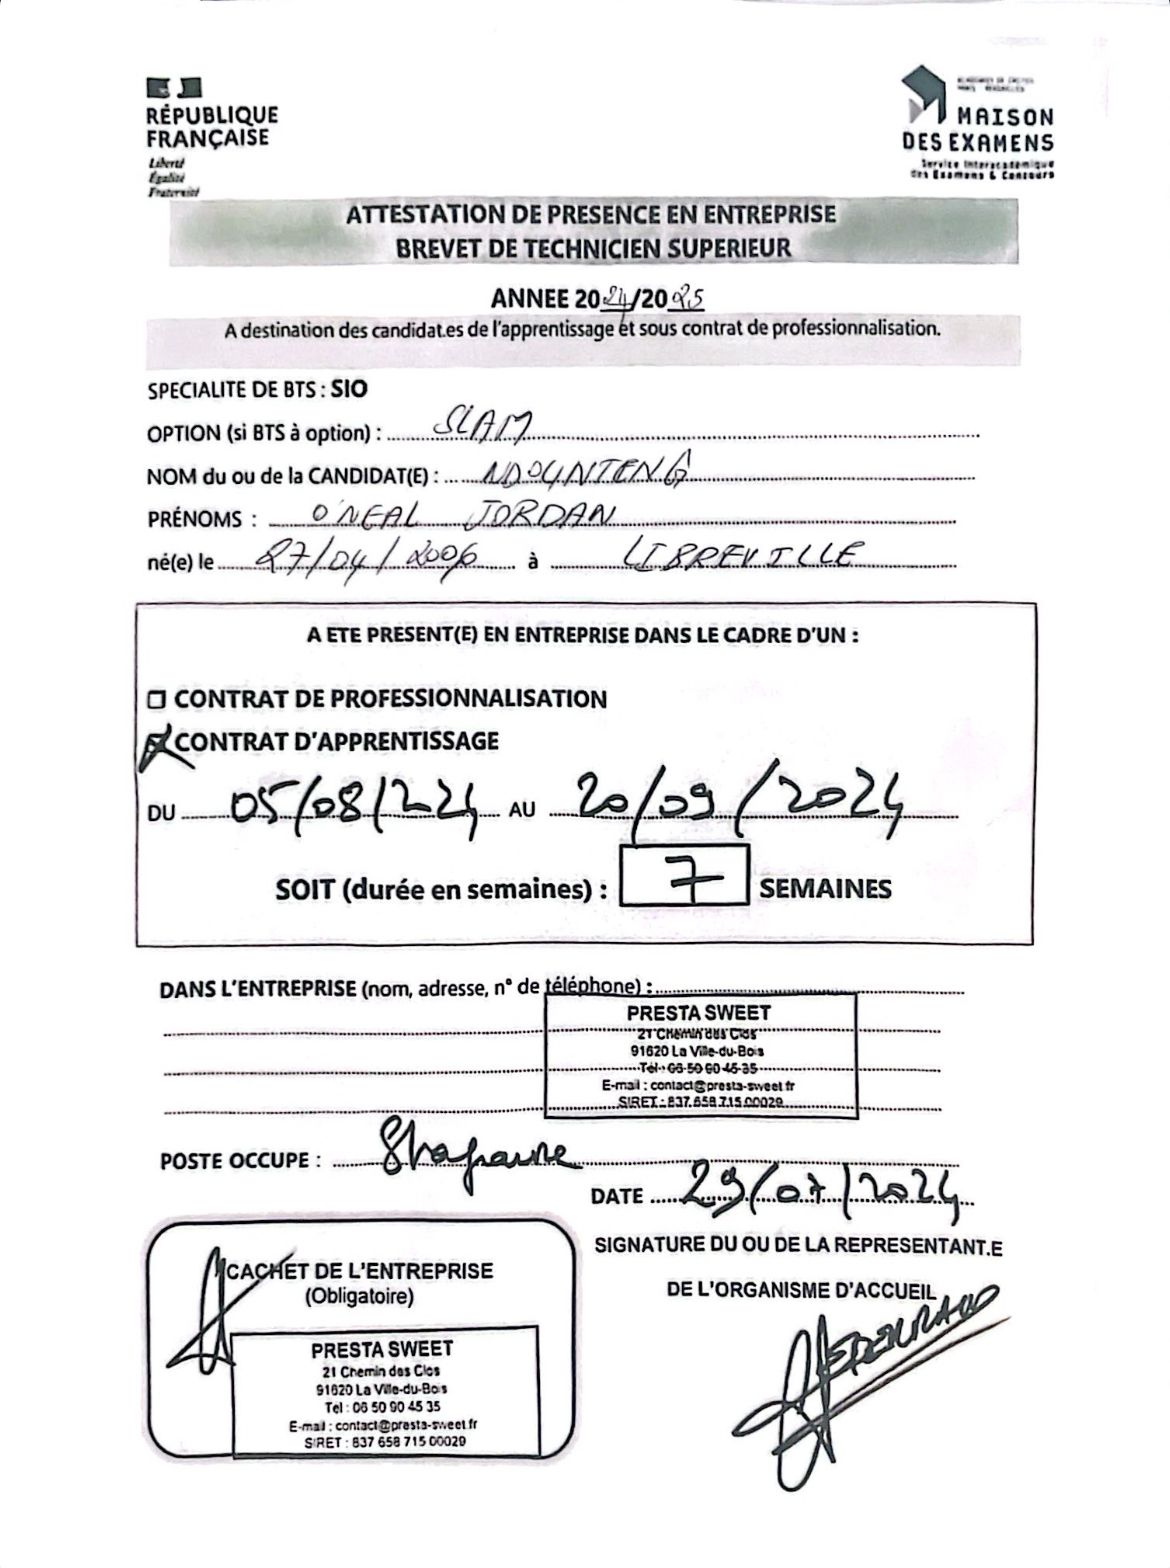 RÉPUBLIQUE
FRANÇAISE
Liberté
Égalité
Fraternité
MAISON
DES EXAMENS
Service Interacadémique
des Examens & Concours
ATTESTATION DE PRESENCE EN ENTREPRISE
BREVET DE TECHNICIEN SUPERIEUR
ANNEE 2024/2025
A destination des candidat.es de l'apprentissage et sous contrat de professionnalisation.
SPECIALITE DE BTS : SIO
OPTION (si BTS à option) : SLAM
NOM du ou de la CANDIDAT(E) : NDOUNTENG
PRÉNOMS : O'NEAL JORDAN
né(e) le 27/04/2006 à LIBREVILLE
A ETE PRESENT(E) EN ENTREPRISE DANS LE CADRE D'UN :
☐ CONTRAT DE PROFESSIONNALISATION
☒ CONTRAT D'APPRENTISSAGE
DU 05/08/2024 AU 20/09/2024
SOIT (durée en semaines) : 7 SEMAINES
DANS L'ENTREPRISE (nom, adresse, n° de téléphone) :
PRESTA SWEET
21 Chemin des Clos
91620 La Ville-du-Bois
Tél : 06 50 90 45 35
E-mail : contact@presta-sweet.fr
SIRET : 837 658 715 00029
POSTE OCCUPE : Stagiaire
DATE 29/07/2024
SIGNATURE DU OU DE LA REPRESENTANT.E
DE L'ORGANISME D'ACCUEIL
CACHET DE L'ENTREPRISE
(Obligatoire)
PRESTA SWEET
21 Chemin des Clos
91620 La Ville-du-Bois
Tel : 06 50 90 45 35
E-mail : contact@presta-sweet.fr
SIRET : 837 658 715 00029